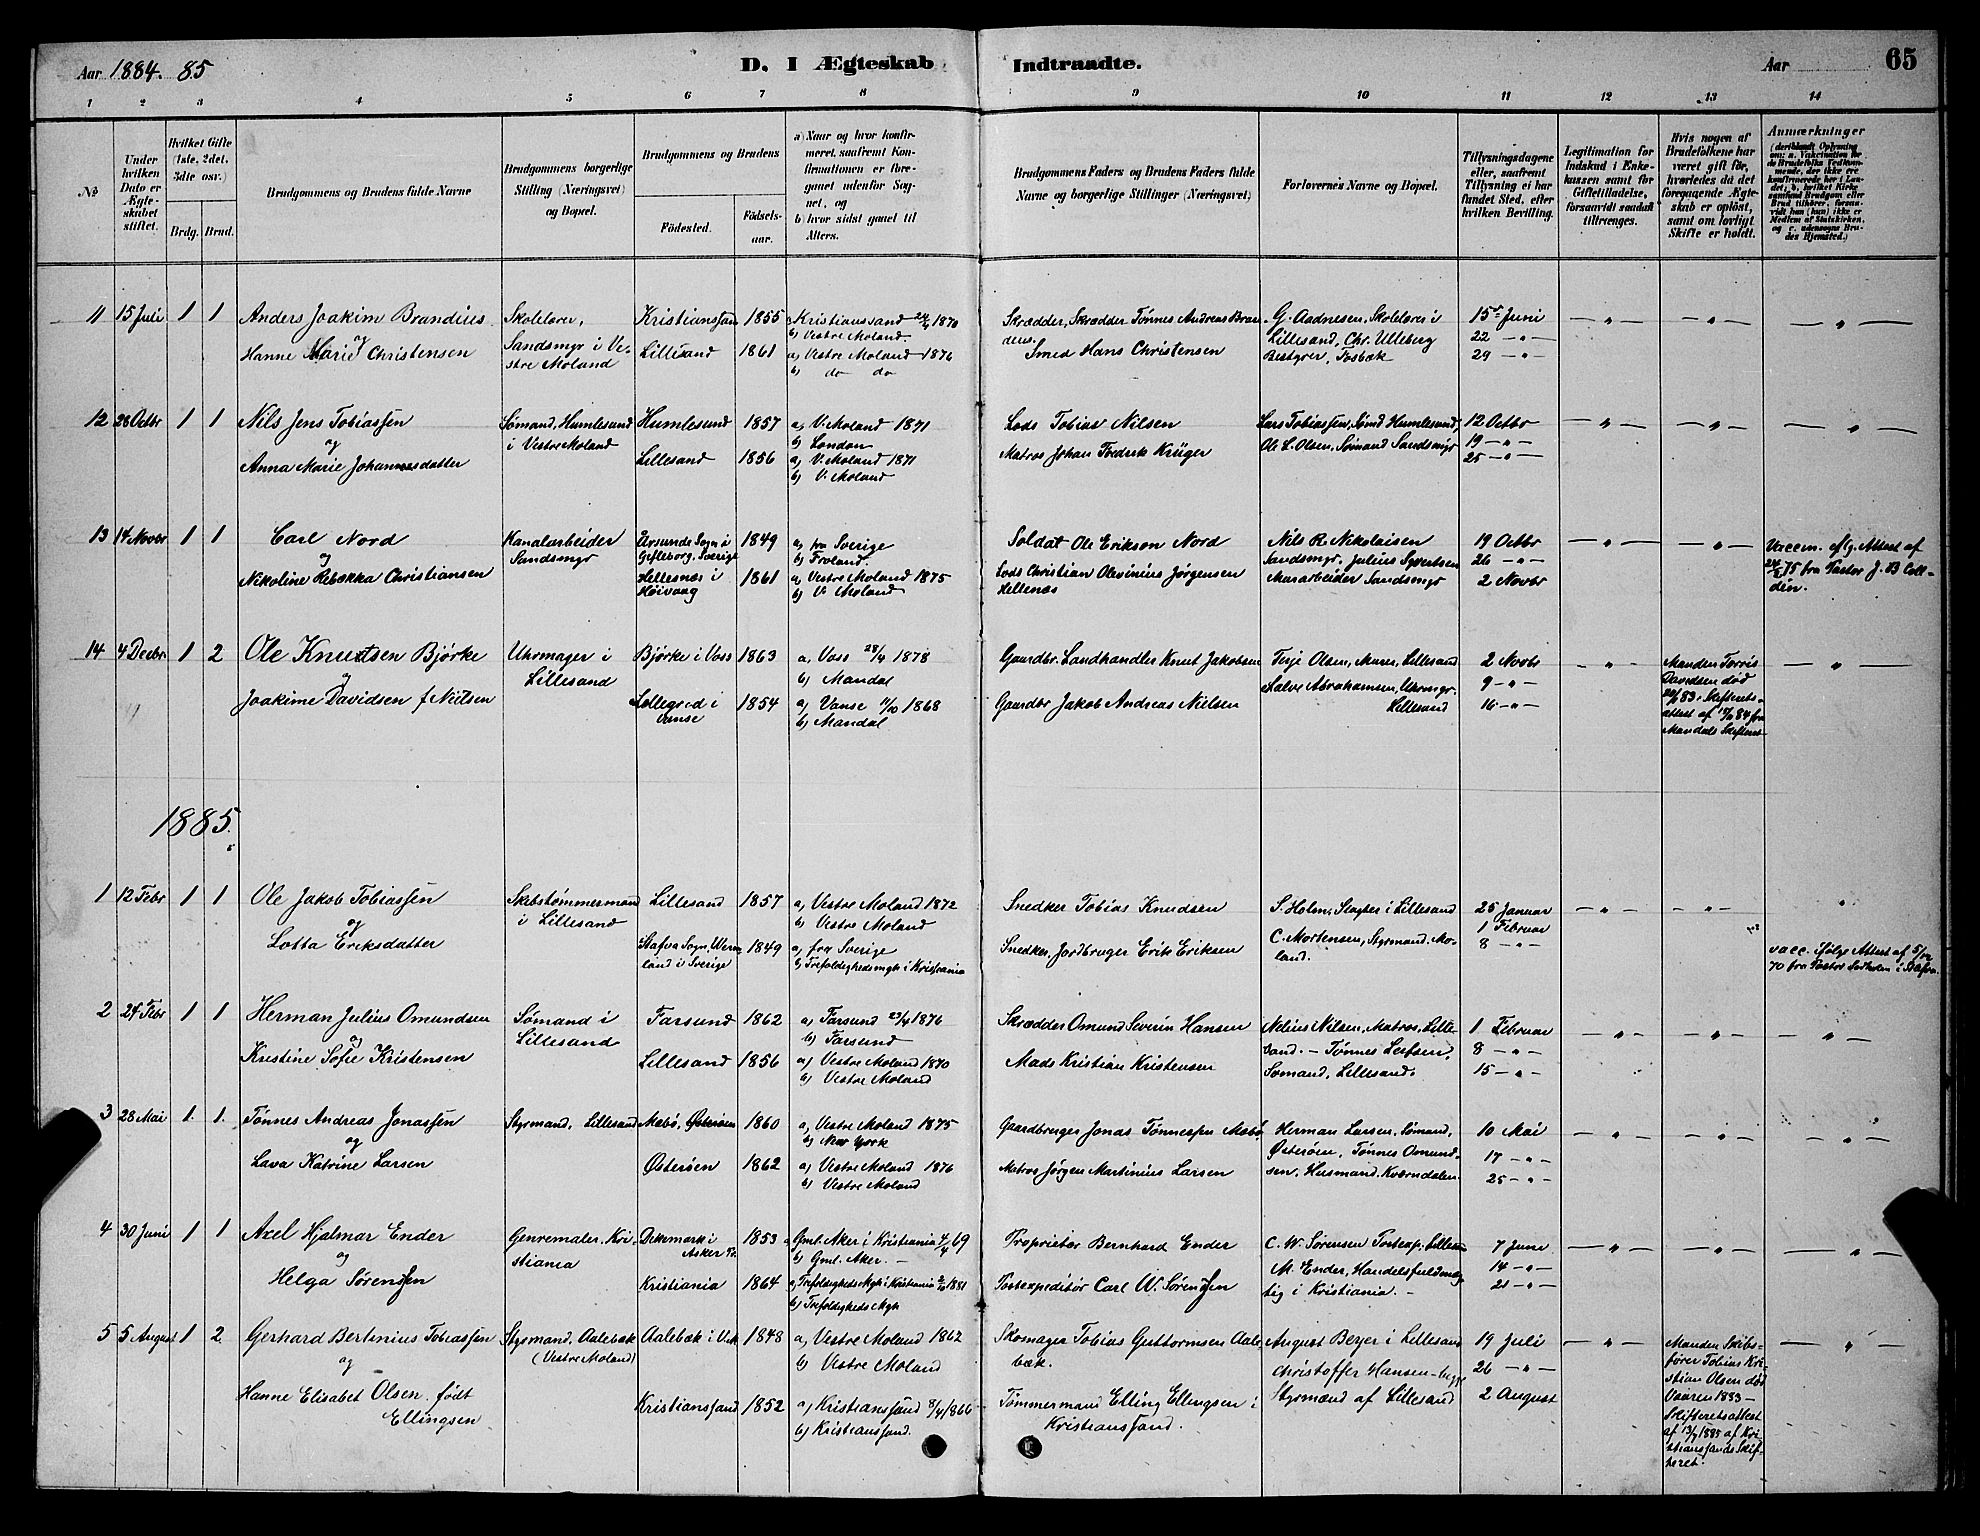 Aar 1884. 85
D. I Ægteskab Indtraadte.
Aar
65
1 2 3 4 5 6 7 8 9 10 11 12 13 14
No
Under hvilken Dato er Ægteskabet stiftet.
Hvilket Gifte (1ste, 2det, 3die osv.)
Brdg. Brud.
Brudgommens og Brudens fulde Navne
Brudgommens borgerlige Stilling (Næringsvei) og Bopæl.
Brudgommens og Brudens
Fødested.
Fødselsaar.
a) Naar og hvor konfirmeret, saafremt Konfirmationen er foregaaet udenfor Sognet, og
b) hvor sidst gaaet til Alters.
Brudgommens Faders og Brudens Faders fulde Navne og borgerlige Stillinger (Næringsvei)
Forlovernes Navne og Bopæl.
Tillysningsdagene eller, saafremt Tillysning ei har fundet Sted, efter hvilken Bevilling.
Legitimation for Indskud i Enkekassen samt for Giftetilladelse, forsaavidt saadan tiltrænges.
Hvis nogen af Brudefolkene har været gift før, hvorledes da det foregaaende Ægteskab er opløst, samt om lovligt Skifte er holdt.
Anmærkninger (deriblandt Oplysning om: a. Vaccination for de Brudefolks Vedkommende, der ikke ere konfirmerede her i Landet; b. hvilket Kirkesamfund Brudgom eller Brud tilhører, forsaavidt han (hun) ikke er Medlem af Statskirken, og c. udensogns Brudes Hjemsted.)
11 15 Juli 1 1 Anders Joakim Brandius
og
Hanne Marie Christensen
Skolelærer,
Sandsmyr i Vestre Moland
Kristianssand 1855
Lillesand 1861
a) Kristianssand 1870
b) Vestre Moland.
a) Vestre Moland 1876
b) do do
Skrædder, Skrædder Tønnes Andreas Brandeus.
Smed Hans Christensen
G. Aadnesen, Skolelærer i
Lillesand, Chr. Ulleberg
Bestyrer, Fosbæk
15 Juni
22 — " —
29 — " —
12 28 Octbr 1 1 Nils Jens Tobiassen
og
Anna Marie Johannesdatter
Sømand, Humlesund
i Vestre Moland
Humlesund 1857
Lillesand 1856
a) V. Moland 1871
b) London
a) V. Moland 1871
b) V. Moland
Lods Tobias Nilsen
Matros Johan Fredrik Krüger
Lars Tobiassen, Sømd Humlesund.
Ole L. Olsen, Sømand Sandsmyr
12 Octbr
19 — " —
25 — " —
13 14 Novbr 1 1 Carl Nord
og
Nikoline Rebekka Christiansen
Kanalarbeider
Sandsmyr
Årsunda Sogn i
Gefleborg. Sverige 1849
Hellesnes i
Høivaag 1861
a) fra Sverige
b) Froland.
a) Vestre Moland 1875
b) V. Moland
Soldat Ole Erikson Nord
Lods Christian Olevinius Jørgensen
Hellenæs
Nils R. Nikolaisen
Sandsmyr, Julius Syvertsen
Murarbeider Sandsmyr
19 Octbr
26 — " —
2 Novbr
Vaccin. iflg. Attest af
24/5 75 fra Pastor J. B Colldén.
14 4 Decbr. 1 2 Ole Knutsen Bjørke
og
Joakime Davidsen f. Nielsen
Uhrmager i
Lillesand
Bjørke i Voss 1863
Lollegred i
Vanse 1854
a, Voss 28/4 1878
b) Mandal
a, Vanse 11/10 1868
b) Mandal
Gaardbr. Landhandler Knut Jakobsen
Gaardbr Jakob Andreas Nielsen
Terje Olsen, Murer, Lillesand
Salve Abrahamsen, Uhrmgr.
Lillesand
2 Novbr
9 — " —
16 — " —
Manden Torris
Davidsen død
83. Skifterets-
attest af 84 fra
Mandals Skifteret
1885.
1 12 Febr 1 1 Ole Jakob Tobiassen
og
Lotta Eriksdatter
Skibstømmermand
i Lillesand
Lillesand 1857
Stafva Sogn, Werm-
land i Sverige 1849
a, Vestre Moland 1872
b) Vestre Moland
a, fra Sverige
b) Trefoldighedsmgh i Kristiania
Snedker Tobias Knudsen
Snedker, Jordbruger Erik Eriksen
S. Holm, Slagter i Lillesand
C. Mortensen, Styrmand, Moland.
25 Januar
1 Februar
8 — " —
vacc. ifølge Attest af 5/12
70 fra Pastor Sedholm i Stafva.
2 24 Febr 1 1 Herman Julius Omundsen
og
Kristine Sofie Kristensen
Sømand i
Lillesand
Farsund 1862
Lillesand 1856
a) Farsund 23/4 1876
b) Farsund
a) Vestre Moland 1870
b) Vestre Moland
Skrædder Omund Severin Hansen
Mads Kristian Kristensen
Nelius Nilsen, Matros, Lille-
sand. — Tønnes Leifsen,
Sømand, Lillesand.
1 Februar
8 — " —
15 — " —
3 28 Mai 1. 1. Tønnes Andreas Jonassen
og
Lava Katrine Larsen
Styrmand, Lillesand
Mæbø, Østerøen 1860
Østerøen 1862
a, Vestre Moland 1875
b) New York
a) Vestre Moland 1876
b) Vestre Moland
Gaardbruger Jonas Tønnessen Mæbø
Matros Jørgen Martinius Larsen
Herman Larsen, Sømand,
Østerøen, Tønnes Omund-
sen, Husmand, Kværndalen
10 Mai
17 — " —
25 — " —
4 30 Juni 1 1 Axel Hjalmar Ender
og
Helga Sørenssen
Genremaler, Kri-
stiania
Dikemark i
Asker Pr. 1853
Kristiania 1864
a Gml. Aker i Kristiania 4/4 69
b) Gml. Aker. —
a) Trefoldigheds Mgh i Kristiania 1881
b) Trefoldigheds Mgh
Proprietær Bernhard Ender
Postexpeditør Carl W. Sørenssen
C. W. Sørensen Postexp. Lillesand
M. Ender, Handelsfuldmæg-
tig i Kristiania. —
7 Juni
14 — " —
21 — " —
5 5 August 1 2 Gerhard Bertinius Tobiassen
og
Hanne Elisabet Olsen, født
Ellingsen
Styrmand, Aalebæk
(Vestre Moland)
Aalebæk i Vestr 1848
Kristianssand 1852
a, Vestre Moland 1862
b) Vestre Moland
a, Kristianssand 8/4 1866
b) Kristianssand.
Skomager Tobias Guttormsen Aale-
bæk.
Tømmermand Elling Ellingsen i
Kristianssand.
August Beyer i Lillesand
Christoffer Hansen — begge
Styrmænd af Lillesand
19 Juli
26 — " —
2 August
Manden Skibs-
fører Tobias Kri-
stian Olsen død
Vaaren 1883 —
Skifteretsattest
af 13/7 1885 af Kri-
stianssands Skif-
teret.